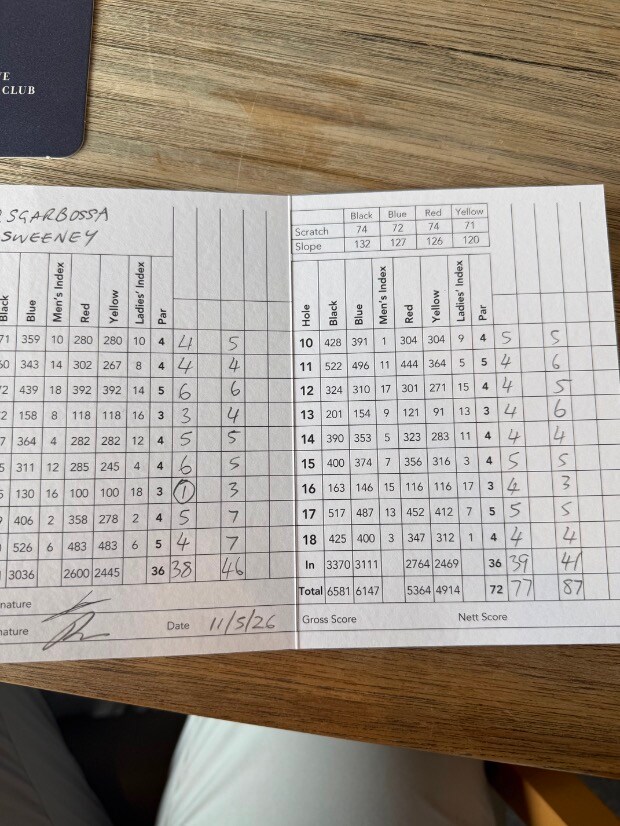 E
CLUB
SGARBOSSA
SWEENEY
Black Blue Men's Index Red Yellow Ladies' Index Par
71 359 10 280 280 10 4 4 5
60 343 14 302 267 8 4 4 4
2 439 18 392 392 14 5 6 6
2 158 8 118 118 16 3 3 4
7 364 4 282 282 12 4 5 5
5 311 12 285 245 4 4 6 5
5 130 16 100 100 18 3 1 3
9 406 2 358 278 2 4 5 7
526 6 483 483 6 5 4 7
3036 2600 2445 36 38 46
nature
nature Date 11/5/26
Black Blue Red Yellow
Scratch 74 72 74 71
Slope 132 127 126 120
Hole Black Blue Men's Index Red Yellow Ladies' Index Par
10 428 391 1 304 304 9 4 5 5
11 522 496 11 444 364 5 5 4 6
12 324 310 17 301 271 15 4 4 5
13 201 154 9 121 91 13 3 4 6
14 390 353 5 323 283 11 4 4 4
15 400 374 7 356 316 3 4 5 5
16 163 146 15 116 116 17 3 4 3
17 517 487 13 452 412 7 5 5 5
18 425 400 3 347 312 1 4 4 4
In 3370 3111 2764 2469 36 39 41
Total 6581 6147 5364 4914 72 77 87
Gross Score Nett Score